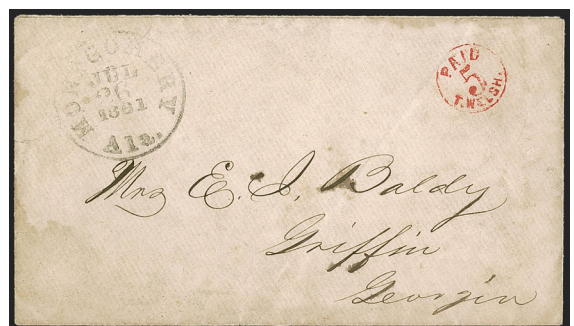 MONTGOMERY
JUL
26
1861
Ala.
PAID
5
T. WELSH.
Mrs E. I. Baldy
Griffin
Georgia